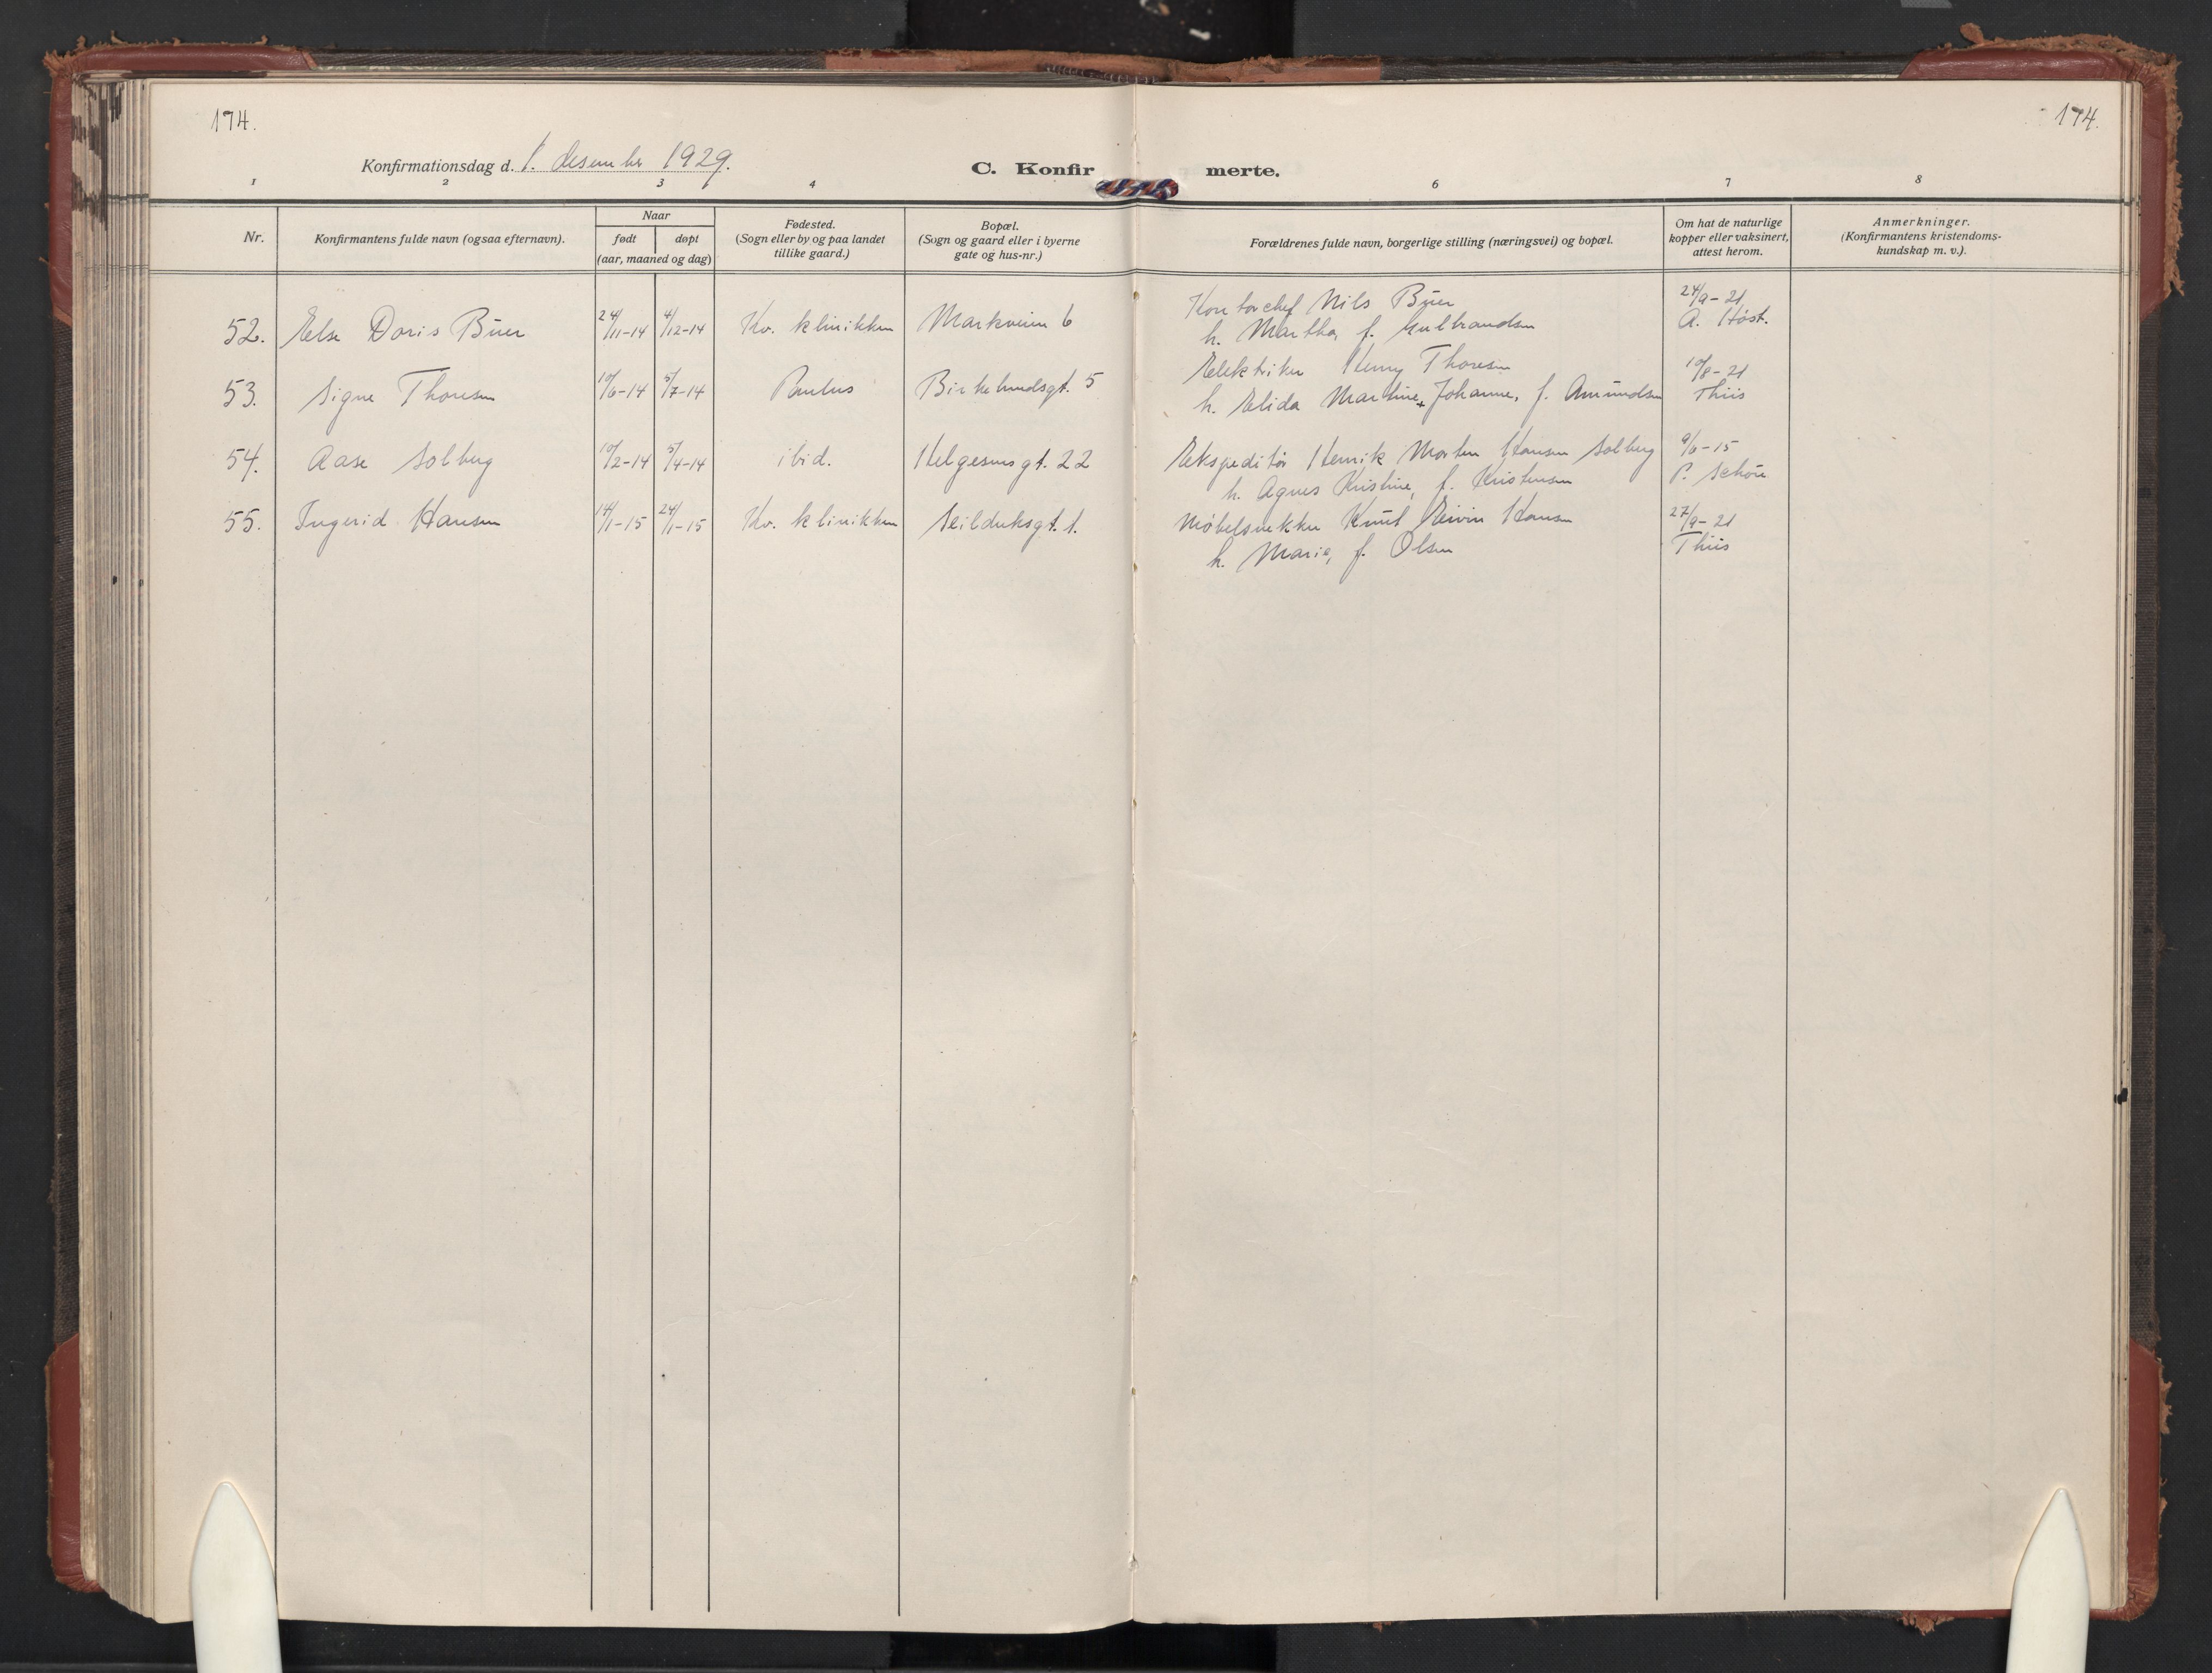 174.
174.
Konfirmationsdag d. 1. desember 1929.
C. Konfir merte.
1 2 3 4 6 7 8
Nr.
Konfirmantens fulde navn (ogsaa efternavn).
Naar
født
døpt
(aar, maaned og dag)
Fødested.
(Sogn eller by og paa landet
tillike gaard.)
Bopæl.
(Sogn og gaard eller i byerne
gate og hus-nr.)
Forældrenes fulde navn, borgerlige stilling (næringsvei) og bopæl.
Om hat de naturlige
kopper eller vaksinert,
attest herom.
Anmerkninger.
(Konfirmantens kristendoms-
kundskap m. v.).
52. Else Doris Buer 24/11-14 4/12-14 Kv. klinikken Markveien 6
Kontorchef Nils Buer
h. Martha, f. Gulbrandsen
24/9-21
A. Høst.
53. Signe Thoresen 10/6-14 5/7-14 Paulus Birkelundsgt. 5
Elektriker Henry Thoresen
h. Elida Martine Johanne, f. Amundsen
10/8-21
Thiis
54. Aase Solberg 10/2-14 5/4-14 ibid. Helgesensgt. 22
Ekspeditør Henrik Morten Hansen Solberg
h. Agnes Kristine, f. Kristensen
9/6-15
P. Schøie
55. Ingerid Hansen 14/1-15 24/1-15 Kv. klinikken Seilduksgt. 1.
Møbelsnekker Knut Eivin Hansen
h. Marie, f. Olsen
27/9-21
Thiis